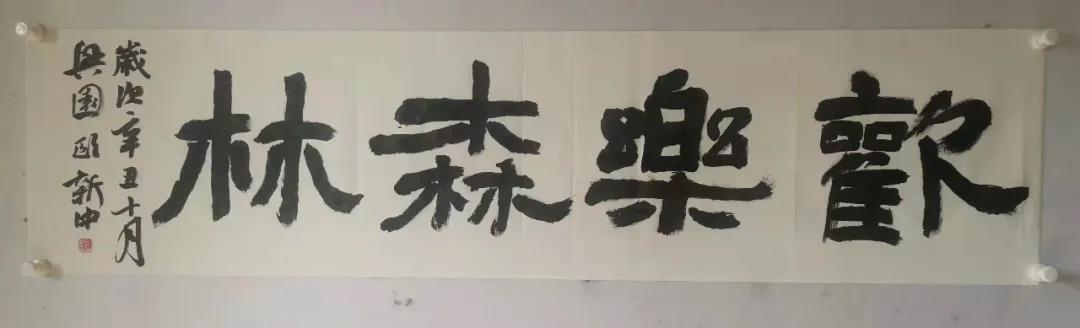 歡樂森林
歲次辛丑十月
興園新中